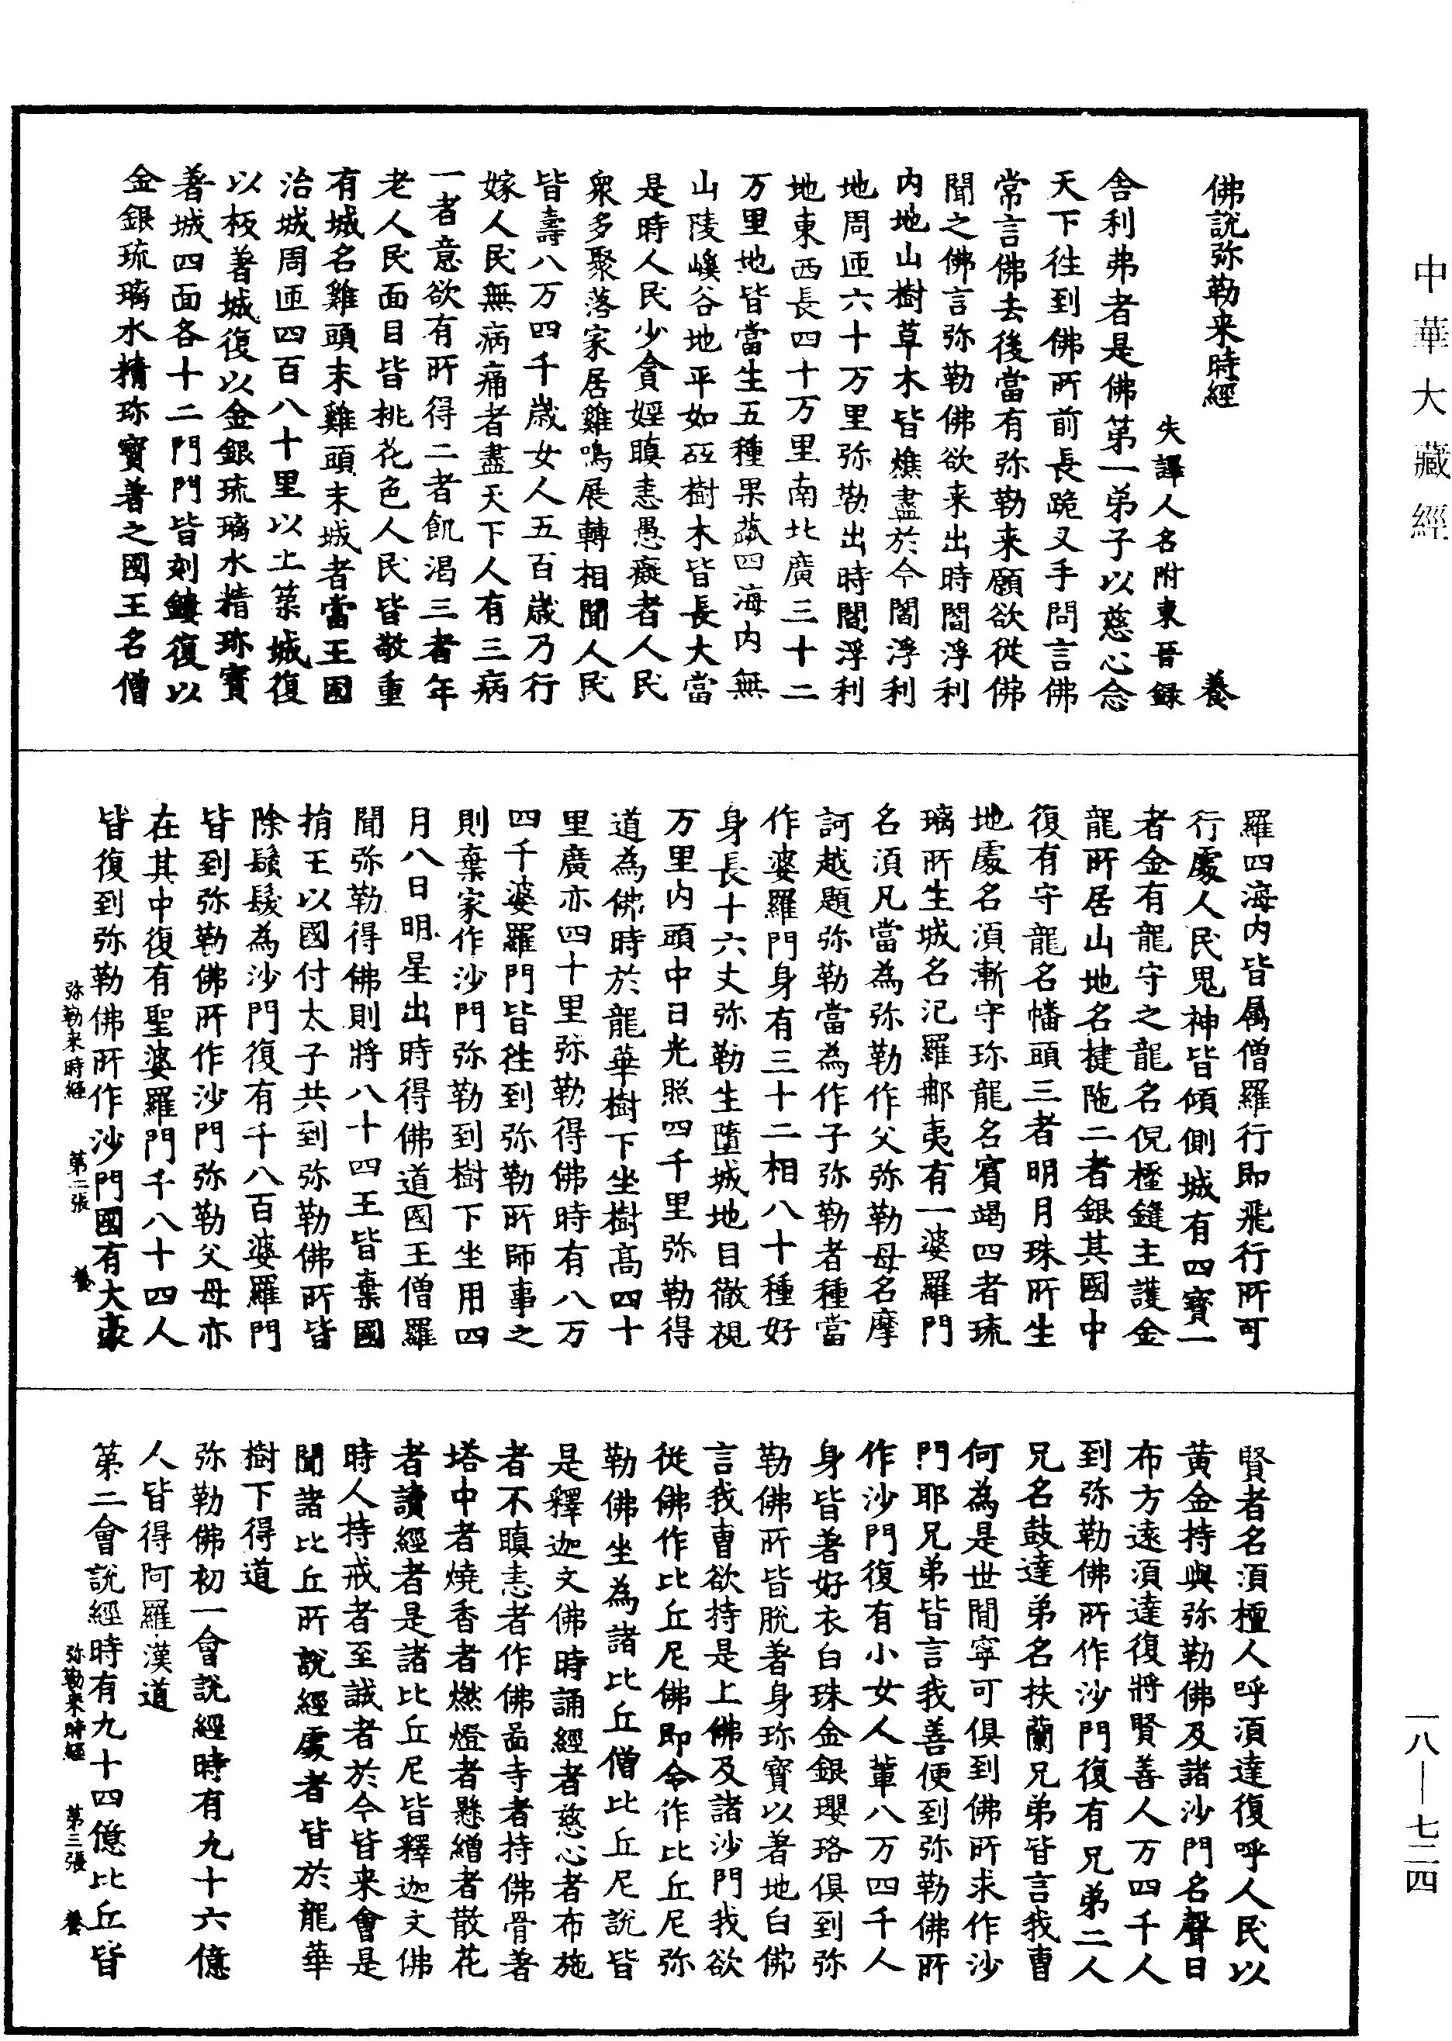 中華大藏經
佛說弥勒来時經　養
失譯人名附東晉錄
舍利弗者是佛第一弟子以慈心念
天下往到佛所前長跪叉手問言佛
常言佛去後當有弥勒来願欲從佛
聞之佛言弥勒佛欲来出時閻浮利
内地山樹草木皆燋盡於今閻浮利
地周迊六十万里弥勒出時閻浮利
地東西長四十万里南北廣三十二
万里地皆當生五種果蓏四海内無
山陵嵠谷地平如砥樹木皆長大當
是時人民少貪婬瞋恚愚癡者人民
衆多聚落家居雞鳴展轉相聞人民
皆壽八万四千歲女人五百歲乃行
嫁人民無病痛者盡天下人有三病
一者意欲有所得二者飢渴三者年
老人民面目皆桃花色人民皆敬重
有城名雞頭末雞頭末城者當王國
治城周迊四百八十里以土築城復
以板著城復以金銀琉璃水精珎寶
著城四面各十二門門皆刻鏤復以
金銀琉璃水精珎寶著之國王名僧
羅四海内皆屬僧羅行即飛行所可
行處人民鬼神皆傾側城有四寶一
者金有龍守之龍名倪㯹鏠主護金
龍所居山地名揵陁二者銀其國中
復有守龍名幡頭三者明月珠所生
地處名湏漸守珎龍名賓竭四者琉
璃所生城名氾羅那夷有一婆羅門
名湏凡當為弥勒作父弥勒母名摩
訶越題弥勒當為作子弥勒者種當
作婆羅門身有三十二相八十種好
身長十六丈弥勒生墮城地目徹視
万里内頭中日光照四千里弥勒得
道為佛時於龍華樹下坐樹高四十
里廣亦四十里弥勒得佛時有八万
四千婆羅門皆往到弥勒所師事之
則棄家作沙門弥勒到樹下坐用四
月八日明星出時得佛道國王僧羅
聞弥勒得佛則將八十四王皆棄國
捐王以國付太子共到弥勒佛所皆
除鬚髮為沙門復有千八百婆羅門
皆到弥勒佛所作沙門弥勒父母亦
在其中復有聖婆羅門千八十四人
皆復到弥勒佛所作沙門國有大豪
弥勒来時經　第二張　養
賢者名湏檀人呼湏達復呼人民以
黄金持與弥勒佛及諸沙門名聲日
布方遠湏達復將賢善人万四千人
到弥勒佛所作沙門復有兄弟二人
兄名鼓達弟名扶蘭兄弟皆言我曹
何為是世間寧可俱到佛所求作沙
門耶兄弟皆言我善便到弥勒佛所
作沙門復有小女人軰八万四千人
身皆著好衣白珠金銀瓔珞俱到弥
勒佛所皆脫著身珎寶以著地白佛
言我曹欲持是上佛及諸沙門我欲
從佛作比丘尼佛即令作比丘尼弥
勒佛坐為諸比丘僧比丘尼說皆
是釋迦文佛時誦經者慈心者布施
者不瞋恚者作佛啚寺者持佛骨著
塔中者燒香者燃燈者懸繒者散花
者讀經者是諸比丘尼皆釋迦文佛
時人持戒者至誠者於今皆来會是
聞諸比丘所說經處者皆於龍華
樹下得道
弥勒佛初一會說經時有九十六億
人皆得阿羅漢道
第二會說經時有九十四億比丘皆
弥勒来時經　第三張　養
一八—七二四